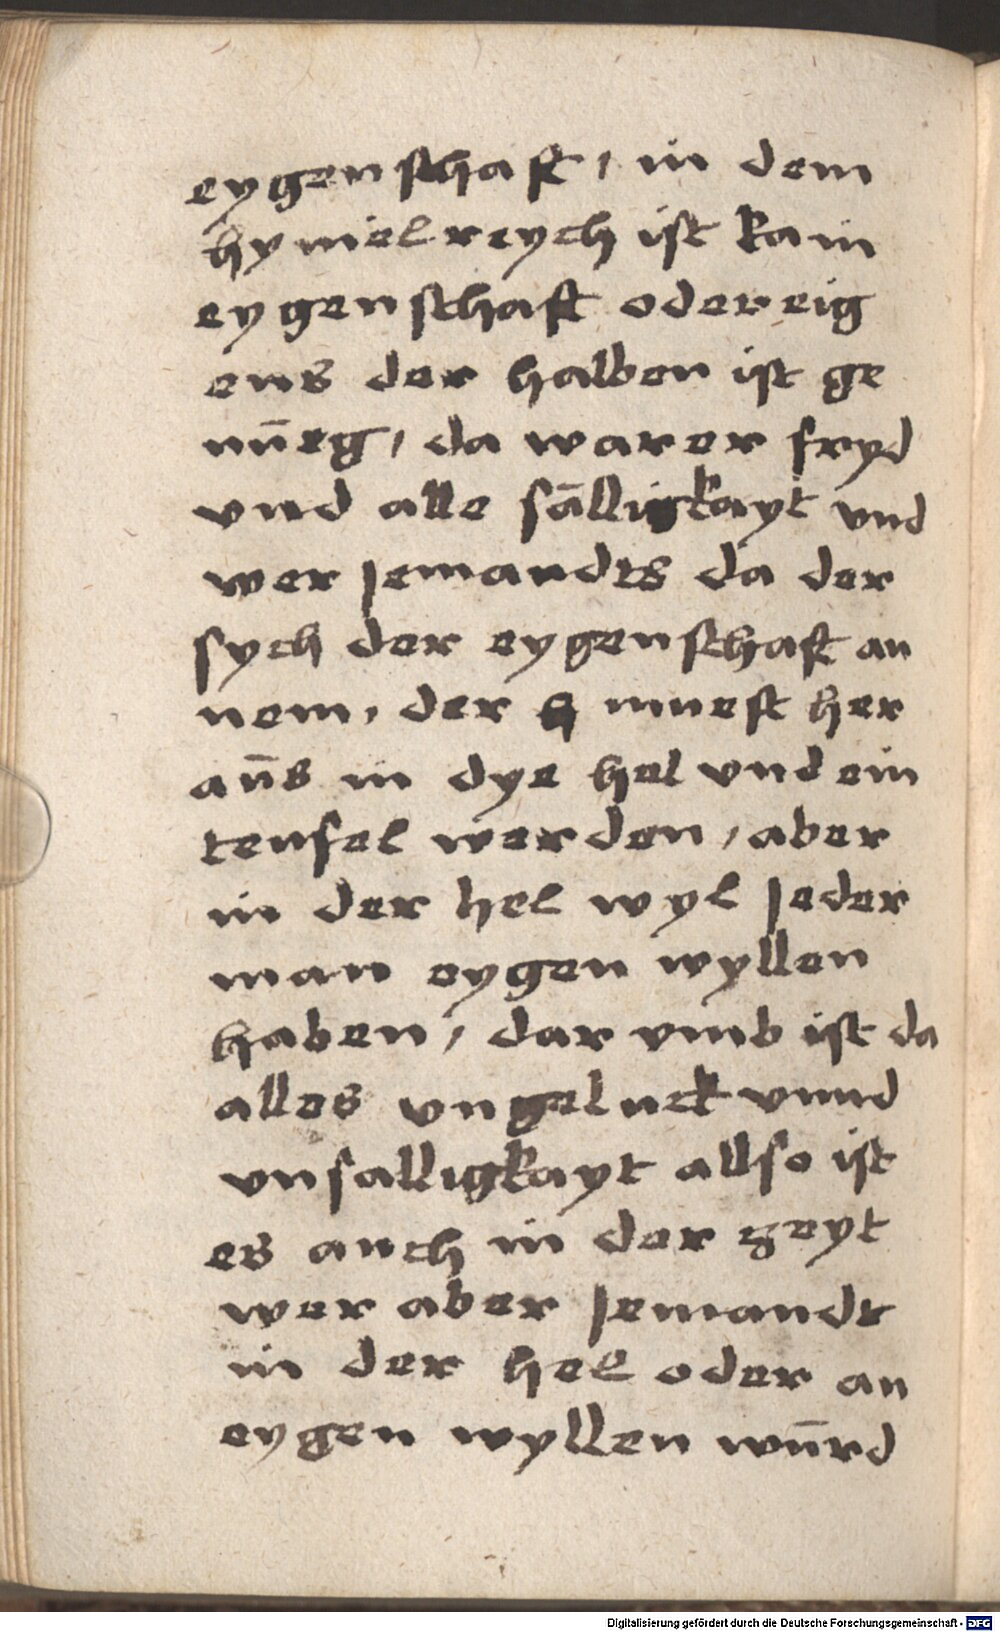 eygenschaft / in dem
hymielreych ist kain
eygenschaft oder eig
ens der halben ist ge
nu̅eg / da warer fryd
vnd alle sa̅lligkayt vnd
wer Jemandts da der
sych der eygenschaft an
nem, der h muest her
au̅s in dye hel vnd ein
teufel werden / aber
in der hel wyl Jeder
man eygen wyllen
haben / dar vmb ist da
alles vngeluck vnnd
vnsalligkayt allso ist
es auch in der zeyt
wer aber Jemandt
in der hel oder an
eygen wyllen wu̅rd
Digitalisierung gefördert durch die Deutsche Forschungsgemeinschaft - DFG